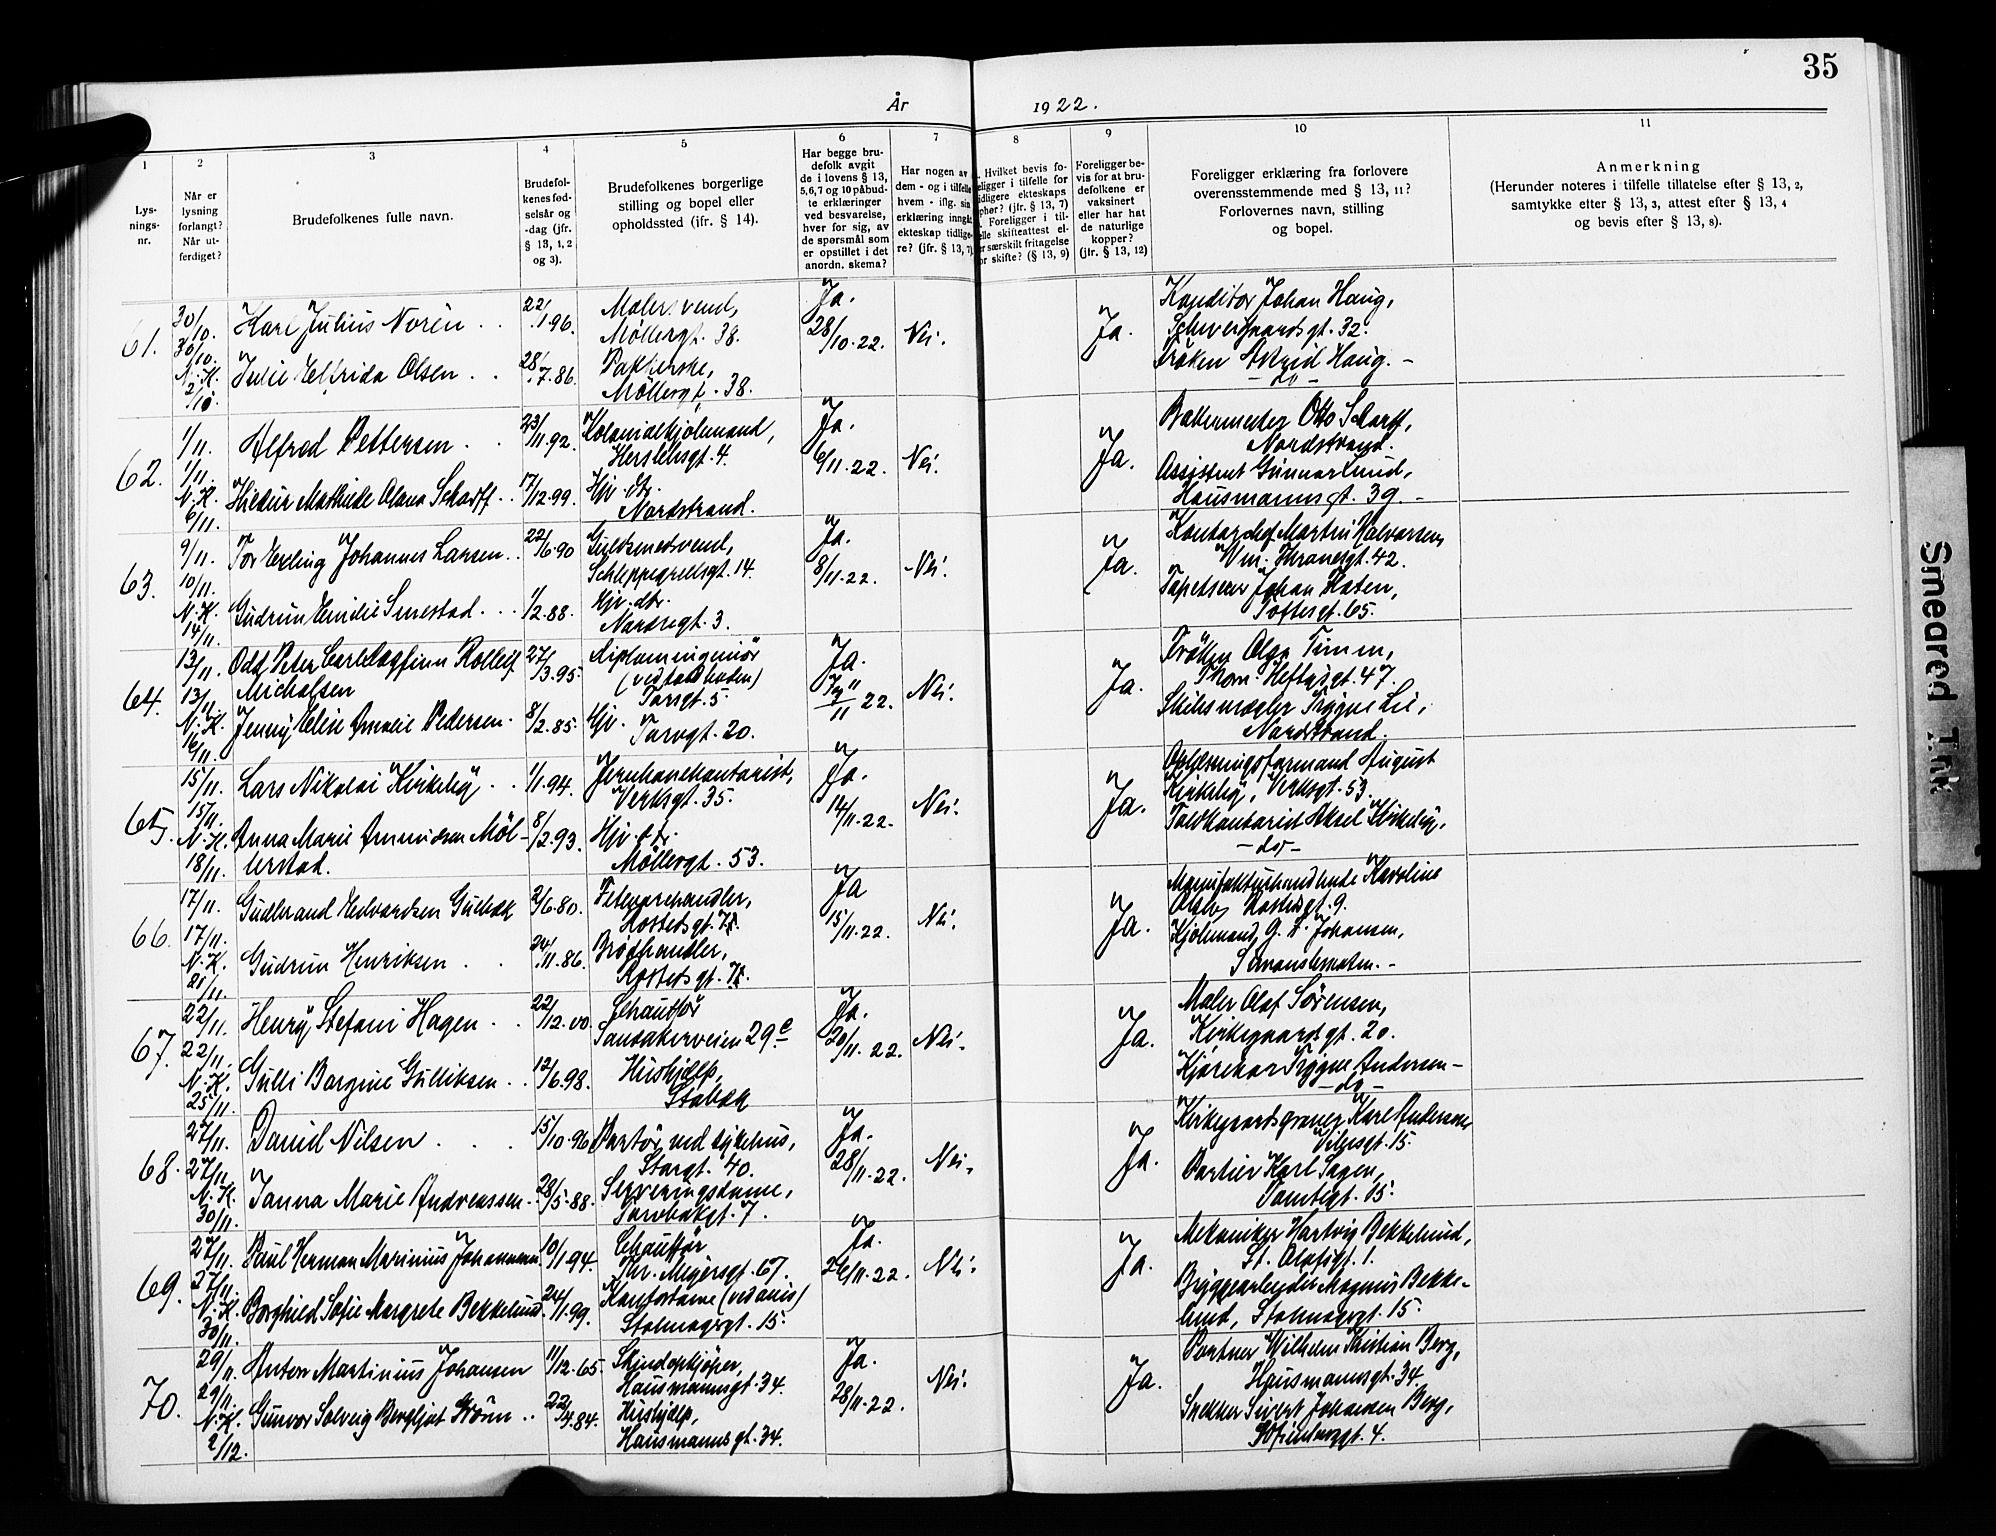 35
År 1922.
1
Lys-
nings-
nr.
2
Når er
lysning
forlangt?
Når ut-
ferdiget?
3
Brudefolkenes fulle navn.
4
Brudefol-
kenes fød-
selsår og
-dag (jfr.
§ 13, 1, 2
og 3).
5
Brudefolkenes borgerlige
stilling og bopel eller
opholdssted (ifr. § 14).
6
Har begge bru-
defolk avgit
de i lovens § 13,
5,6,7 og 10 påbud-
te erklæringer
ved besvarelse,
hver for sig, av
de spørsmål som
er opstillet i det
anordn. skema?
7
Har nogen av
dem - og i tilfelle
hvem - iflg. sin
erklæring inngåt
ekteskap tidlige-
re? (jfr. § 13, 7)
8
. Hvilket bevis fo-
eligger i tilfelle for
idligere ekteskaps
phør? (jfr. § 13, 7)
. Foreligger i til-
elle skifteattest el-
er særskilt fritagelse
or skifte? (§ 13, 9)
9
Foreligger be-
vis for at bru-
defolkene er
vaksinert
eller har hat
de naturlige
kopper?
(jfr. § 13, 12)
10
Foreligger erklæring fra forlovere
overensstemmende med § 13, 11?
Forlovernes navn, stilling
og bopel.
11
Anmerkning
(Herunder noteres i tilfelle tillatelse efter § 13, 2,
samtykke efter § 13, 3, attest efter § 13, 4
og bevis efter § 13, 8).
61.
30/10.
30/10.
N. K.
Karl Julius Norén . .
22/1.96.
Malersvend,
Møllergt. 38.
Julie Elfrida Olsen . .
28/7.86.
Pakkerske,
Møllergt. 38.
Ja.
28/10.22.
Nei.
Ja.
Konditor Johan Haug,
Schweigaardsgt. 32.
Frøken Astrid Haug. -
- do -
62.
1/11.
1/11.
N. K.
6/11.
Alfred Pettersen . .
23/11.92.
Kolonialkjøbmand,
Herslebsgt. 4.
Hildur Mathilde Olava Scharff . .
17/12.99.
Hjv. dtr.
Nordstrand.
Ja.
6/11.22.
Nei.
Ja.
Bakermester Otto Scharff,
Nordstrand.
Assistent Gunnar Lund,
Hausmannsgt. 39. -
63.
9/11.
10/11.
N. K.
14/11.
Tor Erling Johannes Larsen . .
22/6.90
Guldsmedsvend,
Schleppegrellsgt. 14.
Gudrun Emilie Smestad . . .
1/2.88.
Hjv. dtr.
Nordregt. 3.
Ja.
8/11.22.
Nei.
Ja.
Kontorchef Martin Halvorsen,
Vm. Thranesgt. 42.
Tapetserer Johan Hasten,
Toftesgt. 65.
64.
13/11.
13/11.
N. K.
16/11.
Odd Peter Carl Dagfinn Rolleif
Michalsen
27/3.95.
diplomingeniør
Torvgt. 5.
Jenny Elise Amalie Pedersen.
8/2.85.
Hjv.
Torvgt. 20.
Ja.
Nei.
Ja.
Frøken Olga Timm,
Thom. Heftyesgt. 47.
Skibsmægler Trygve Lie,
Nordstrand.
65.
15/11.
15/11.
N. K.
18/11.
Lars Nikolai Kirkeby . .
1/1.94.
Jernbanekontorist,
Verksgt. 35.
Anna Marie Amundsen Møl-
lerstad.
8/2.93.
Hjv. dtr.
Møllergt. 53.
Ja.
14/11.22.
Nei.
Ja.
Oplæsningsformand August
Kirkeby, Verksgt. 53.
Toldkontorist Aksel Kirkeby,
- do -
66.
17/11.
17/11.
N. K.
21/11.
Gudbrand Edvardsen Gulbæk
2/6.80.
Fetevarehandler,
Gudrun Henriksen . .
24/11.86.
Brødhandler,
Ja
15/11.22.
Nei.
Ja.
Manufakturhandlende Karoline
Kjøbmand G. A. Johansen,
67.
22/11.
22/11.
N. K.
25/11.
Henry Stefani Hagen . .
22/12.00.
Chauffør
Sandakerveien 29c
Gulli Borgine Gulliksen . .
12/6.98.
Hushjælp,
Stabæk
Ja.
20/11.22.
Nei.
Ja.
Maler Olaf Sørensen,
Kirkegaardsgt. 20.
Kjørekar Trygve Andersen -
- do -
68.
27/11.
27/11.
N. K.
30/11.
David Nilsen . . .
15/10.96
Portør ved sykehus,
Storgt. 40.
Janna Marie Andreassen.
28/5.88.
Serveringsdame,
Torvbakgt. 7.
Ja.
28/11.22.
Nei.
Ja.
Kirkegaardsgraver Karl Andersen,
Vibesgt. 15.
Portier Karl Sagen,
Tomtegt. 15.
69.
27/11.
27/11.
N. K.
30/11.
Paul Herman Marinius Johannesen.
10/1.94.
Chauffør
Thv. Meyersgt. 67.
Borghild Sofie Margrete Bekkelund.
24/1.99.
Kontordame (ved avis)
Stolmagergt. 15.
Ja.
26/11.22.
Nei.
Ja.
Mekaniker Hartvig Bekkelund,
St. Olafsgt. 1.
Bryggearbeider Magnus Bekke-
lund, Stolmagergt. 15.
70.
29/11.
29/11.
N. K.
2/12.
Anton Martinius Johansen
11/12.65.
Skindopkjøper,
Hausmannsgt. 34.
Gunvor Solveig Bergljot Strøm . .
22/4.84.
Hushjælp,
Hausmannsgt. 34.
Ja.
28/11.22.
Nei.
Ja.
Portner Wilhelm Kristian Berg,
Hausmannsgt. 34.
Snekker Sivert Johansen Berg,
Sofienberggt. 4.
Smeared Ink